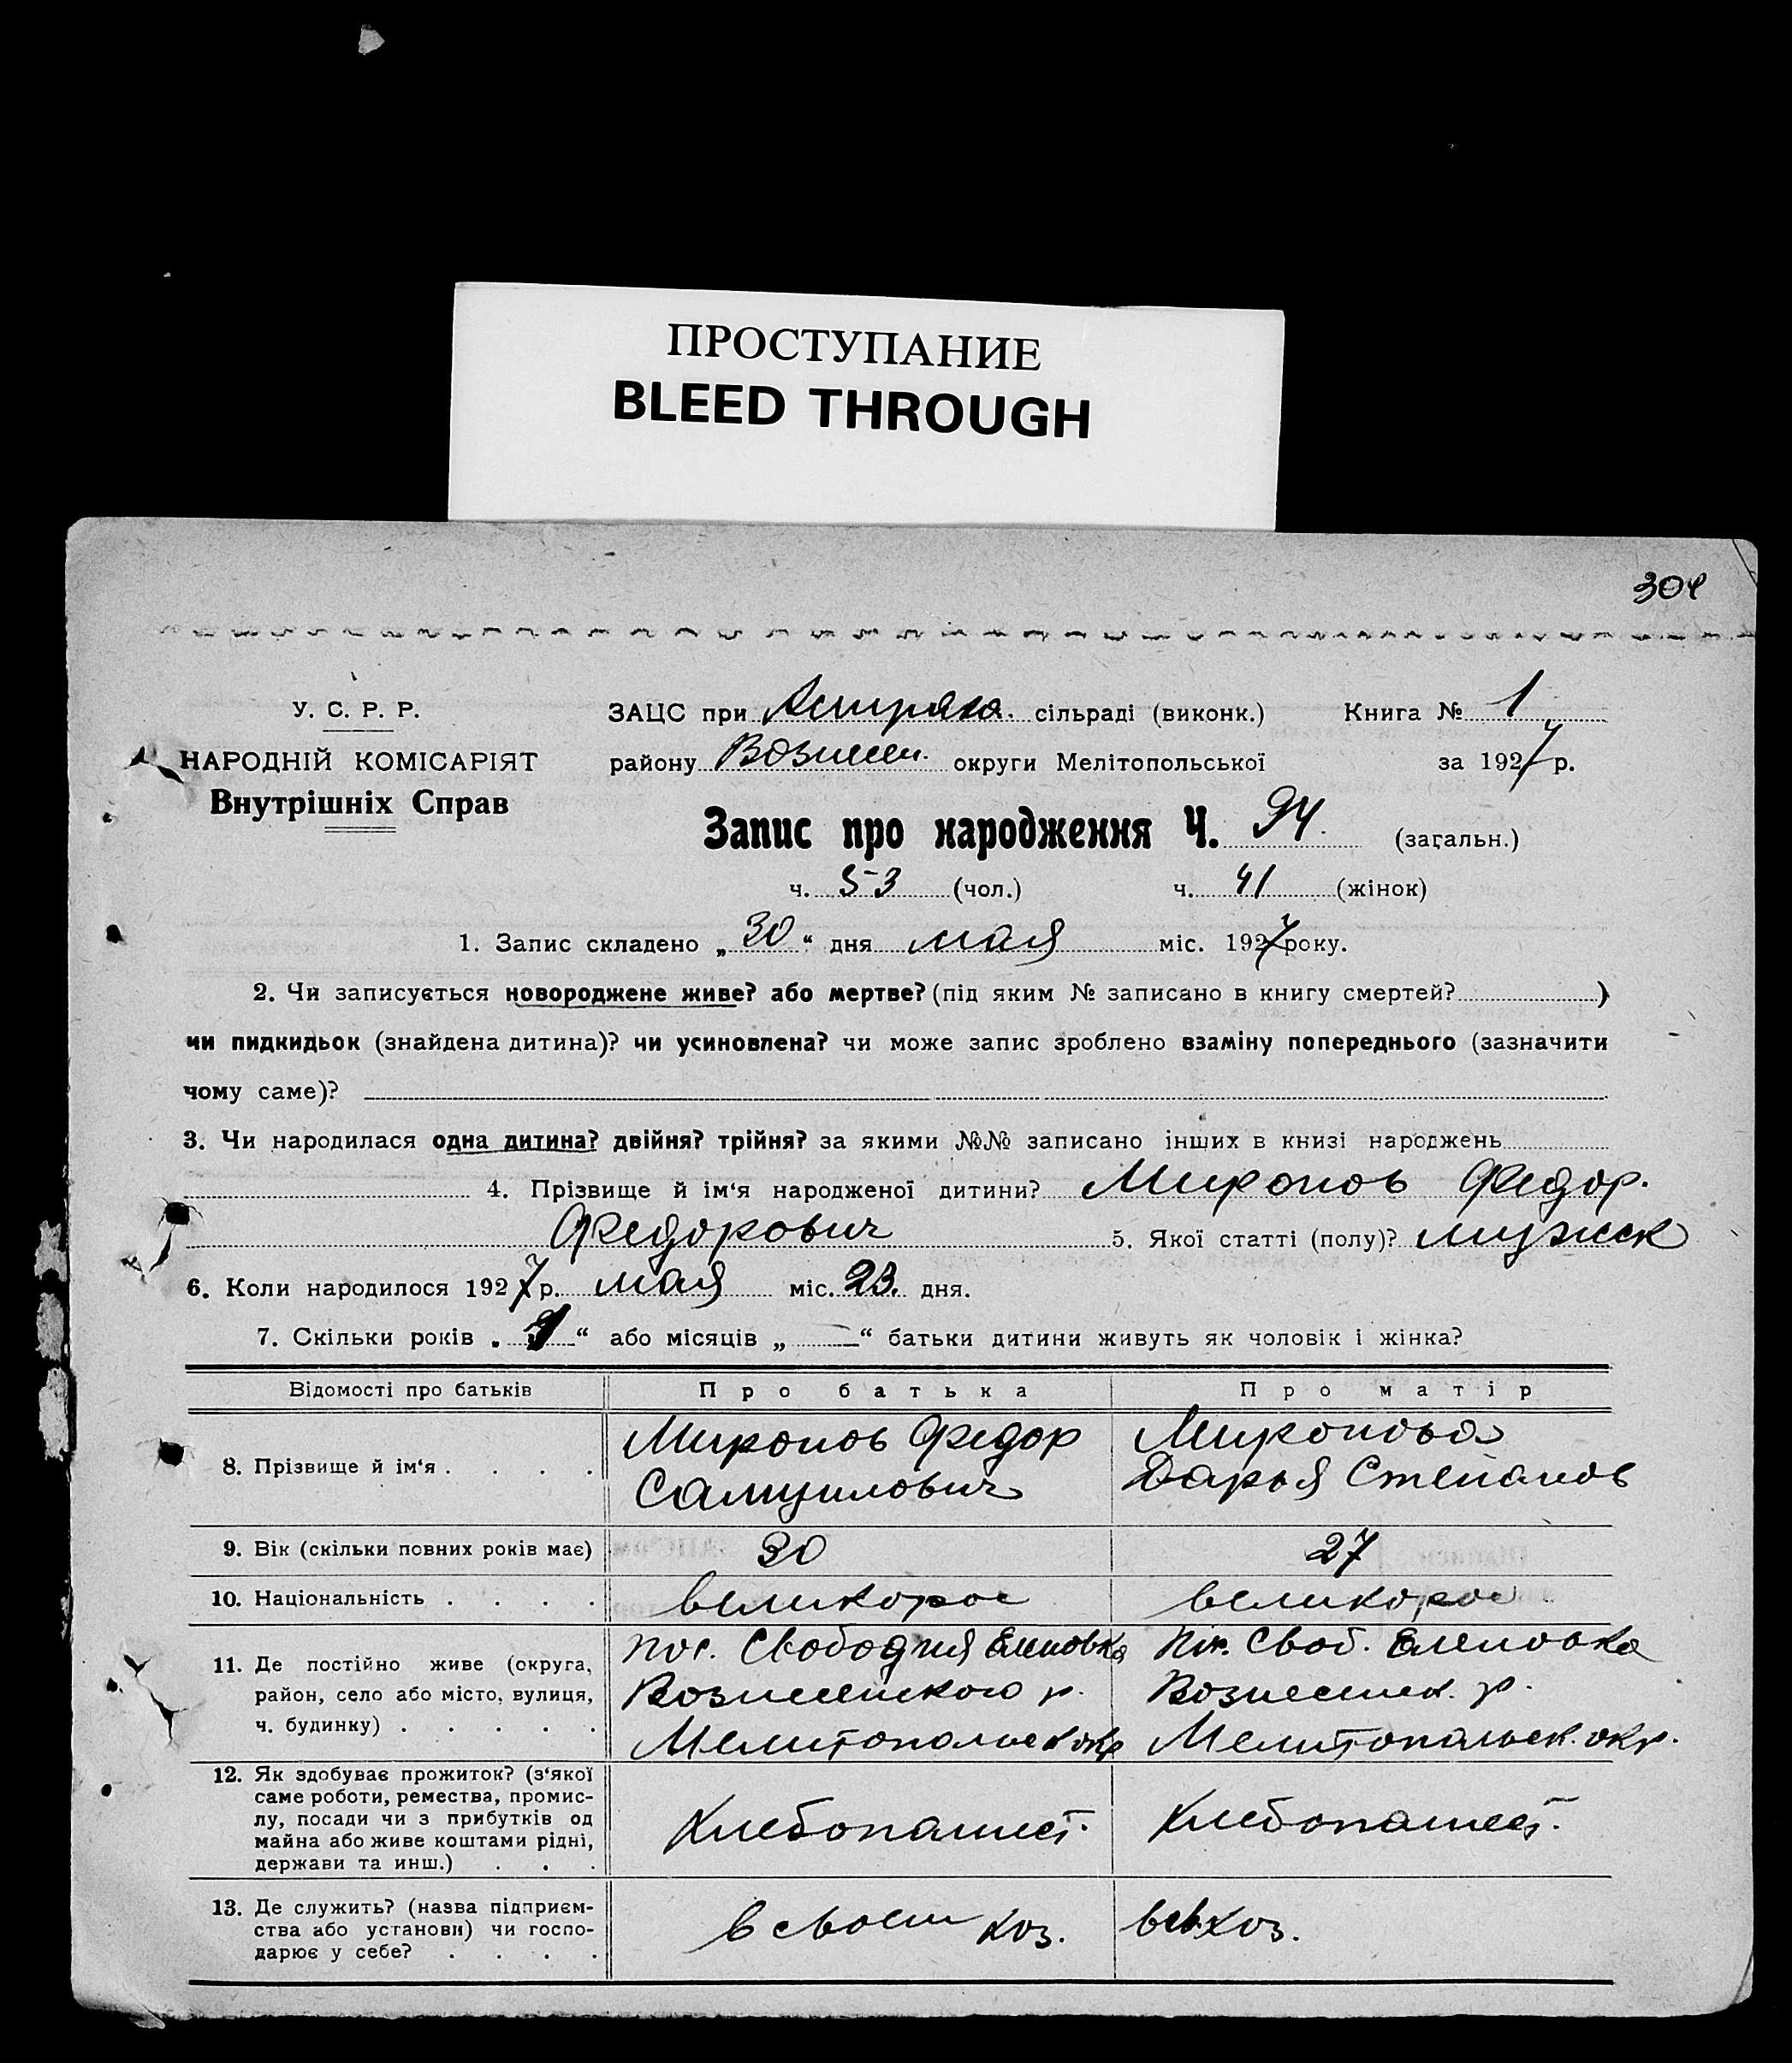 ПРОСТУПАНИЕ
BLEED THROUGH
304
У. С. Р. Р.
НАРОДНІЙ КОМІСАРІЯТ
Внутрішніх Справ
ЗАЦС при Астрах. сільраді (виконк.) Книга № 1
району Вознесен. округи Мелітопольської за 1927 р.
Запис про народження Ч. 94. (загальн.)
ч. 53 (чол.) ч. 41 (жінок)
1. Запис складено „30“ дня мая міс. 1927 року.
2. Чи записується новороджене живе? або мертве? (під яким № записано в книгу смертей? )
чи пидкидьок (знайдена дитина)? чи усиновлена? чи може запис зроблено взаміну попереднього (зазначити
чому саме)?
3. Чи народилася одна дитина? двійня? трійня? за якими №№ записано інших в книзі народжень
4. Прізвище й ім‘я народженої дитини? Миронов Федор.
Федорович 5. Якої статті (полу)? мужск
6. Коли народилося 1927 р. мая міс. 23. дня.
7. Скільки років „ “ або місяців „—“ батьки дитини живуть як чоловік і жінка?
Відомості про батьків Про батька Про матір
8. Прізвище й ім‘я . . . .
Миронов Федор
Самуилович
Миронова
Дарья Степанов
9. Вік (скільки повних років має) 30 27
10. Національність . . . . великорос великорос
11. Де постійно живе (округа,
район, село або місто, вулиця,
ч. будинку) . . . . .
пос. Свободная Еленовка
Вознесенского р.
Мелитопольск окр
пос. Своб. Еленовка
Вознесенск. р.
Мелитопольск. окр.
12. Як здобуває прожиток? (з‘якої
саме роботи, ремества, промис-
лу, посади чи з прибутків од
майна або живе коштами рідні,
держави та инш.) . . .
хлебопашест. хлебопашест.
13. Де служить? (назва підприєм-
ства або установи) чи госпо-
дарює у себе? . . . .
в своем хоз. в св. хоз.